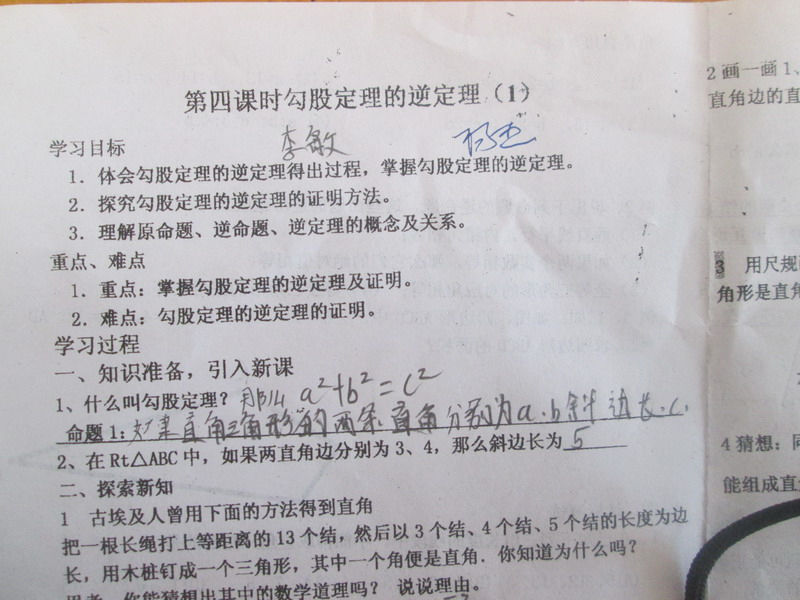 第四课时勾股定理的逆定理（1）
李敏
学习目标
1．体会勾股定理的逆定理得出过程，掌握勾股定理的逆定理。
2．探究勾股定理的逆定理的证明方法。
3．理解原命题、逆命题、逆定理的概念及关系。
重点、难点
1．重点：掌握勾股定理的逆定理及证明。
2．难点：勾股定理的逆定理的证明。
学习过程
一、知识准备，引入新课
1、什么叫勾股定理？那么 a²+b²=c²
命题1：如果直角三角形的两条直角分别为a.b斜边长c.
2、在 Rt△ABC 中，如果两直角边分别为 3、4，那么斜边长为 5
二、探索新知
1 古埃及人曾用下面的方法得到直角
把一根长绳打上等距离的 13 个结，然后以 3 个结、4 个结、5 个结的长度为边
长，用木桩钉成一个三角形，其中一个角便是直角．你知道为什么吗？
思考 你能猜想出其中的数学道理吗？ 说说理由。
2 画一画 1、
直角边的直
3 用尺规
角形是直角
4 猜想：同
能组成直